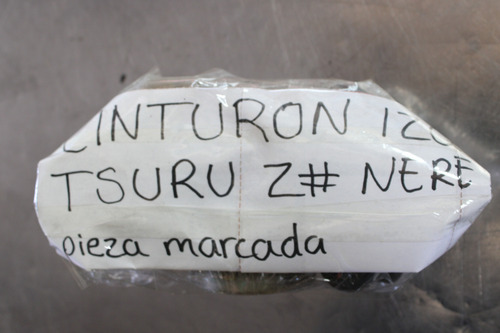 CINTURON IZQ
TSURU Z# NERE
pieza marcada